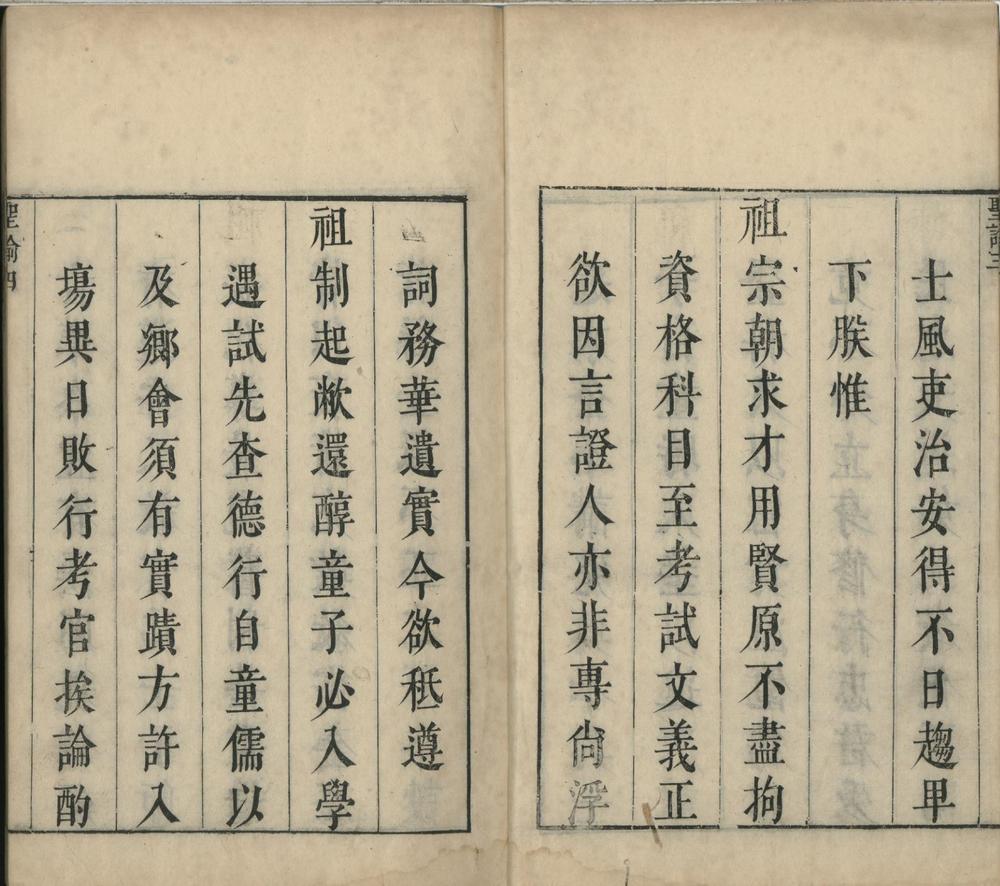 聖諭三
士風吏治安得不日趨卑
下朕惟
祖宗朝求才用賢原不盡拘
資格科目至考試文義正
欲因言證人亦非專尙浮
詞務華遺實今欲祗遵
祖制起敝還醇童子必入學
遇試先查德行自童儒以
及鄉會須有實蹟方許入
塲異日敗行考官挨論酌
聖諭四